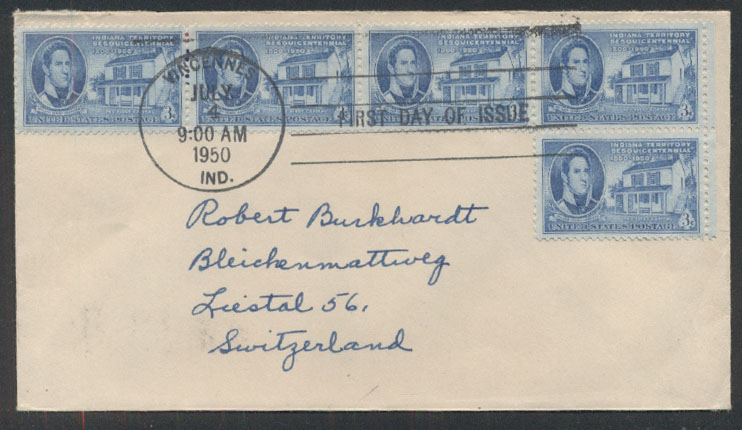 INDIANA TERRITORY
SESQUICENTENNIAL
1800-1950
3¢
UNITED STATES POSTAGE
INDIANA TERRITORY
SESQUICENTENNIAL
1800-1950
3¢
UNITED STATES POSTAGE
INDIANA TERRITORY
SESQUICENTENNIAL
1800-1950
3¢
UNITED STATES POSTAGE
INDIANA TERRITORY
SESQUICENTENNIAL
1800-1950
3¢
UNITED STATES POSTAGE
VINCENNES
JULY
4
9:00 AM
1950
IND.
FIRST DAY OF ISSUE
INDIANA TERRITORY
SESQUICENTENNIAL
1800-1950
3¢
UNITED STATES POSTAGE
Robert Burkhardt
Bleichenmattweg
Liestal 56.
Switzerland